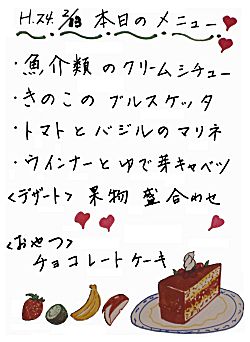 H.24. 2/13 本日のメニュー
・魚介類のクリームシチュー
・きのこのブルスケッタ
・トマトとバジルのマリネ
・ウインナーとゆで芽キャベツ
<デザート> 果物盛合わせ
<おやつ>
チョコレートケーキ